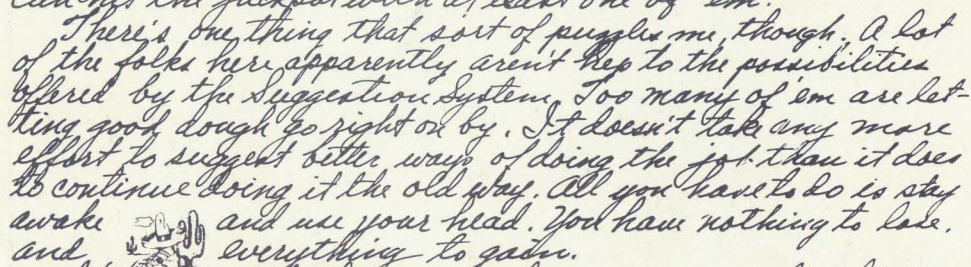 the jackpot with at least one of 'em.
There's one thing that sort of puzzles me, though. A lot
of the folks here apparently aren't hep to the possibilities
offered by the Suggestion System. Too many of 'em are let-
ting good dough go right on by. It doesn't take any more
effort to suggest better ways of doing the job than it does
to continue doing it the old way. All you have to do is stay
awake and use your head. You have nothing to lose.
and everything to gain.